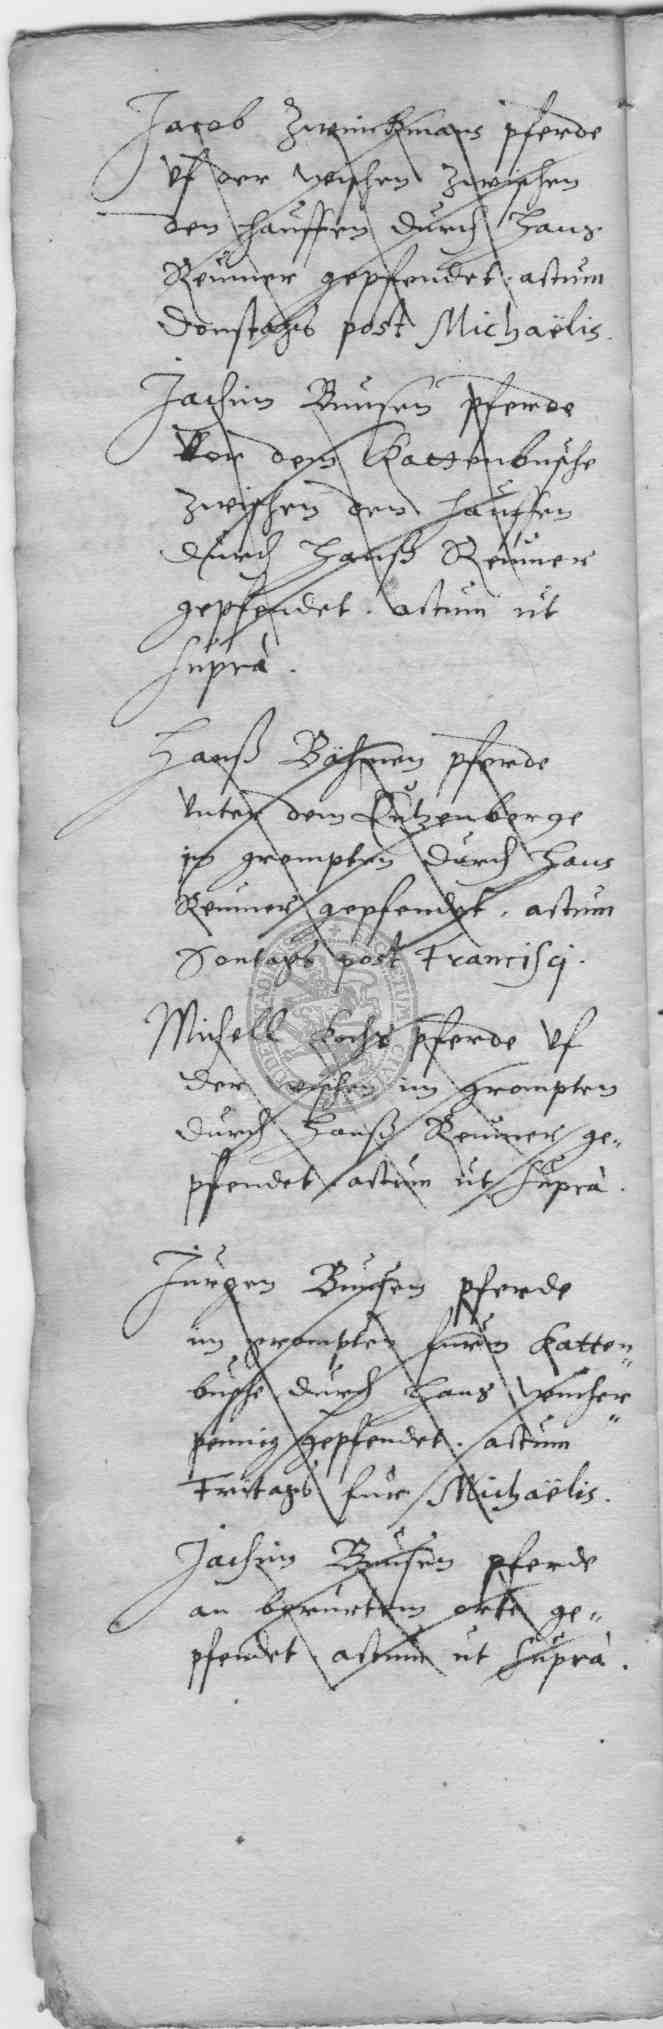 Jacob Zwinckmans pferde
vf der wischen zwischen
den hauffen durch Hans
Reumer gepfendet. actum
Donstags post Michaëlis.
Jachim Buusen pferde
vor dem Kattenbusche
zwischen den hauffen
durch Hanß Reumer
gepfendet. actum ut
supra.
Hanß Böhmen pferde
vnter dem Lutzenberge
im grompten durch Hans
Reumer gepfendet. actum
Sontags post Francisci.
Michell Kochs pferde vf
der wischen im grompten
durch Hanß Reumer ge„
pfendet. actum ut supra.
Jurgen Buusen pferde
im grompten furm Katten„
busche durch Hans Wucher„
pennig gepfendet. actum
Fritags fur Michaëlis.
Jachim Buusen pferde
an berurtem orte ge„
pfendet. actum ut supra.